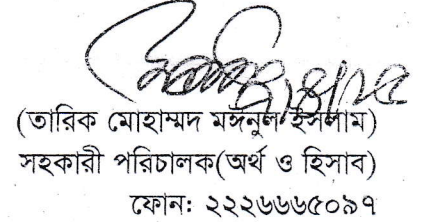 (তারিক মোহাম্মদ মঈনুল ইসলাম)
সহকারী পরিচালক(অর্থ ও হিসাব)
ফোন: ২২২৬৬৬৫০৯৭